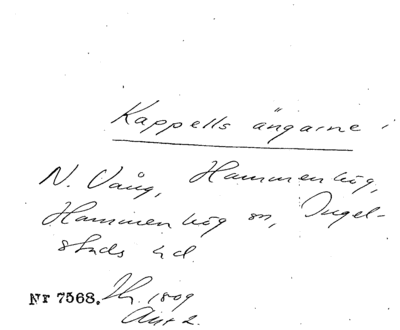 Kappells ängarne i
N. Vång, Hammenhög,
Hammenhög sn, Ingel-
stads hd.
Nr 7568. Th. 1809
Akt 2.